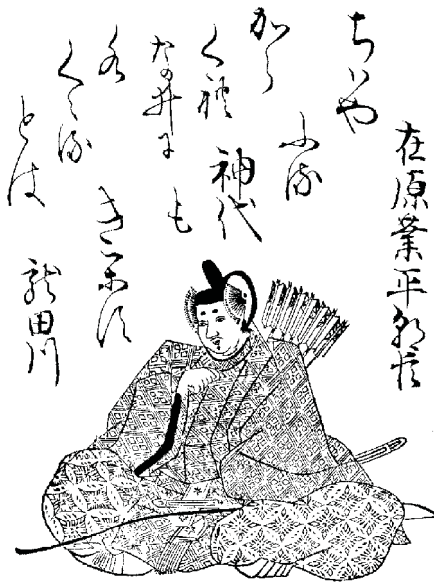 在原業平朝臣
ちはや
ふる
神代
も
きかす
龍田川
から
くれ
なゐに
水
くゝる
とは